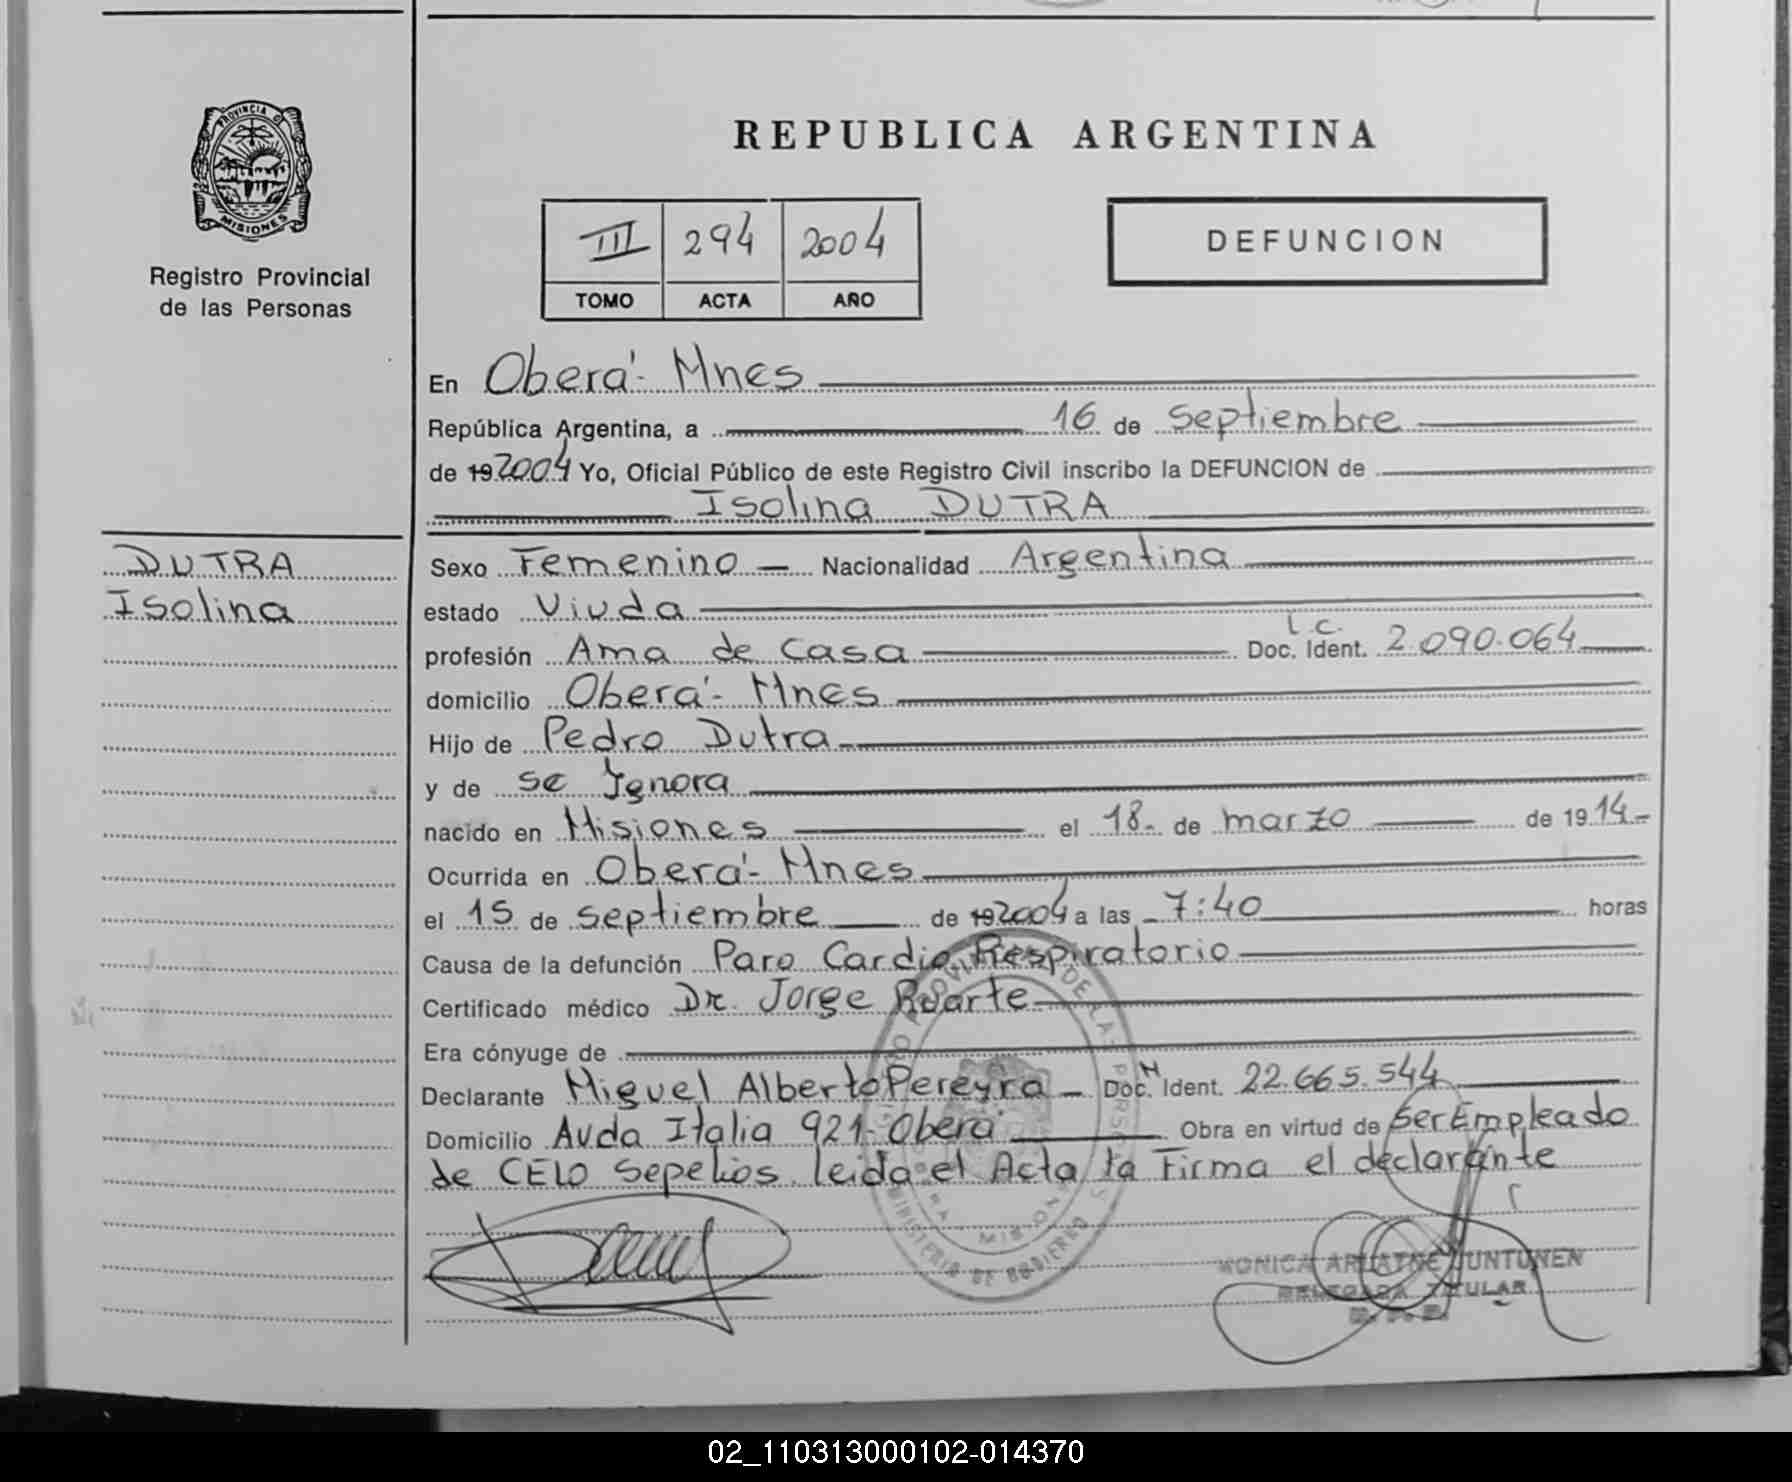 PROVINCIA D
MISIONES
Registro Provincial
de las Personas
REPUBLICA ARGENTINA
III 294 2004
TOMO ACTA AÑO
DEFUNCION
En Oberá - Mnes
República Argentina, a 16 de septiembre
de 19 2004 Yo, Oficial Público de este Registro Civil inscribo la DEFUNCION de
Isolina DUTRA
DUTRA
Isolina
Sexo Femenino — Nacionalidad Argentina
estado Viuda
L.C.
profesión Ama de Casa Doc. Ident. 2.090.064
domicilio Oberá - Mnes
Hijo de Pedro Dutra
y de se Ignora
nacido en Misiones el 18 - de marzo de 19 14 -
Ocurrida en Oberá - Mnes
el 15 de septiembre de 19 2004 a las 7:40 horas
Causa de la defunción Paro Cardio Respiratorio
Certificado médico Dr. Jorge Duarte
Era cónyuge de
Declarante Miguel Alberto Pereyra — Doc. Ident. 22.665.544
Domicilio Avda Italia 921 - Oberá Obra en virtud de ser Empleado
de CELO Sepelios. leida el Acta la Firma el declarante
MINISTERIO DE GOBIERNO
MONICA JUNTUNEN
DELEGADA TITULAR
R. P. P.
02_110313000102-014370